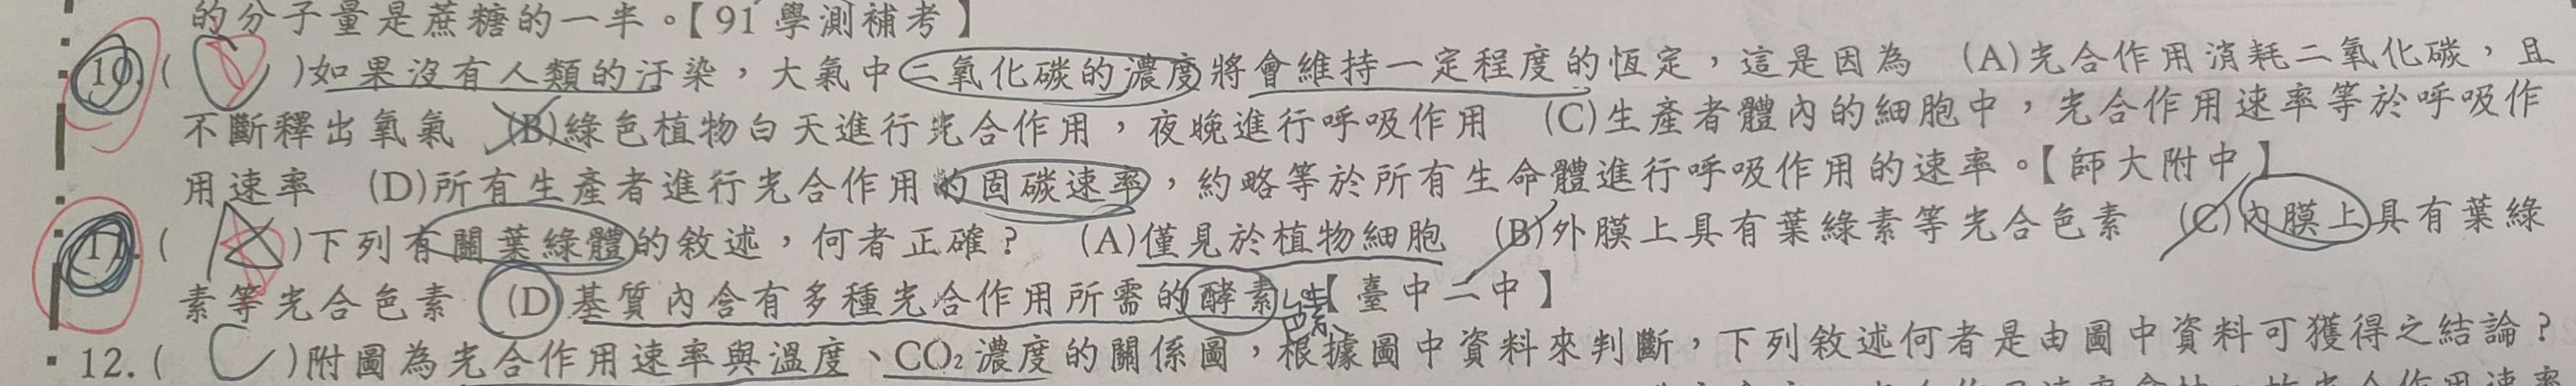 的分子量是蔗糖的一半。【91 學測補考】
10.( )如果沒有人類的汙染,大氣中二氧化碳的濃度將會維持一定程度的恆定,這是因為 (A)光合作用消耗二氧化碳,且
不斷釋出氧氣 (B)綠色植物白天進行光合作用,夜晚進行呼吸作用 (C)生產者體內的細胞中,光合作用速率等於呼吸作
用速率 (D)所有生產者進行光合作用的固碳速率,約略等於所有生命體進行呼吸作用的速率。【師大附中】
11.( )下列有關葉綠體的敘述,何者正確? (A)僅見於植物細胞 (B)外膜上具有葉綠素等光合色素 (C)內膜上具有葉綠
素等光合色素 (D)基質內含有多種光合作用所需的酵素。【臺中二中】
12.( C )附圖為光合作用速率與溫度、CO₂濃度的關係圖,根據圖中資料來判斷,下列敘述何者是由圖中資料可獲得之結論?